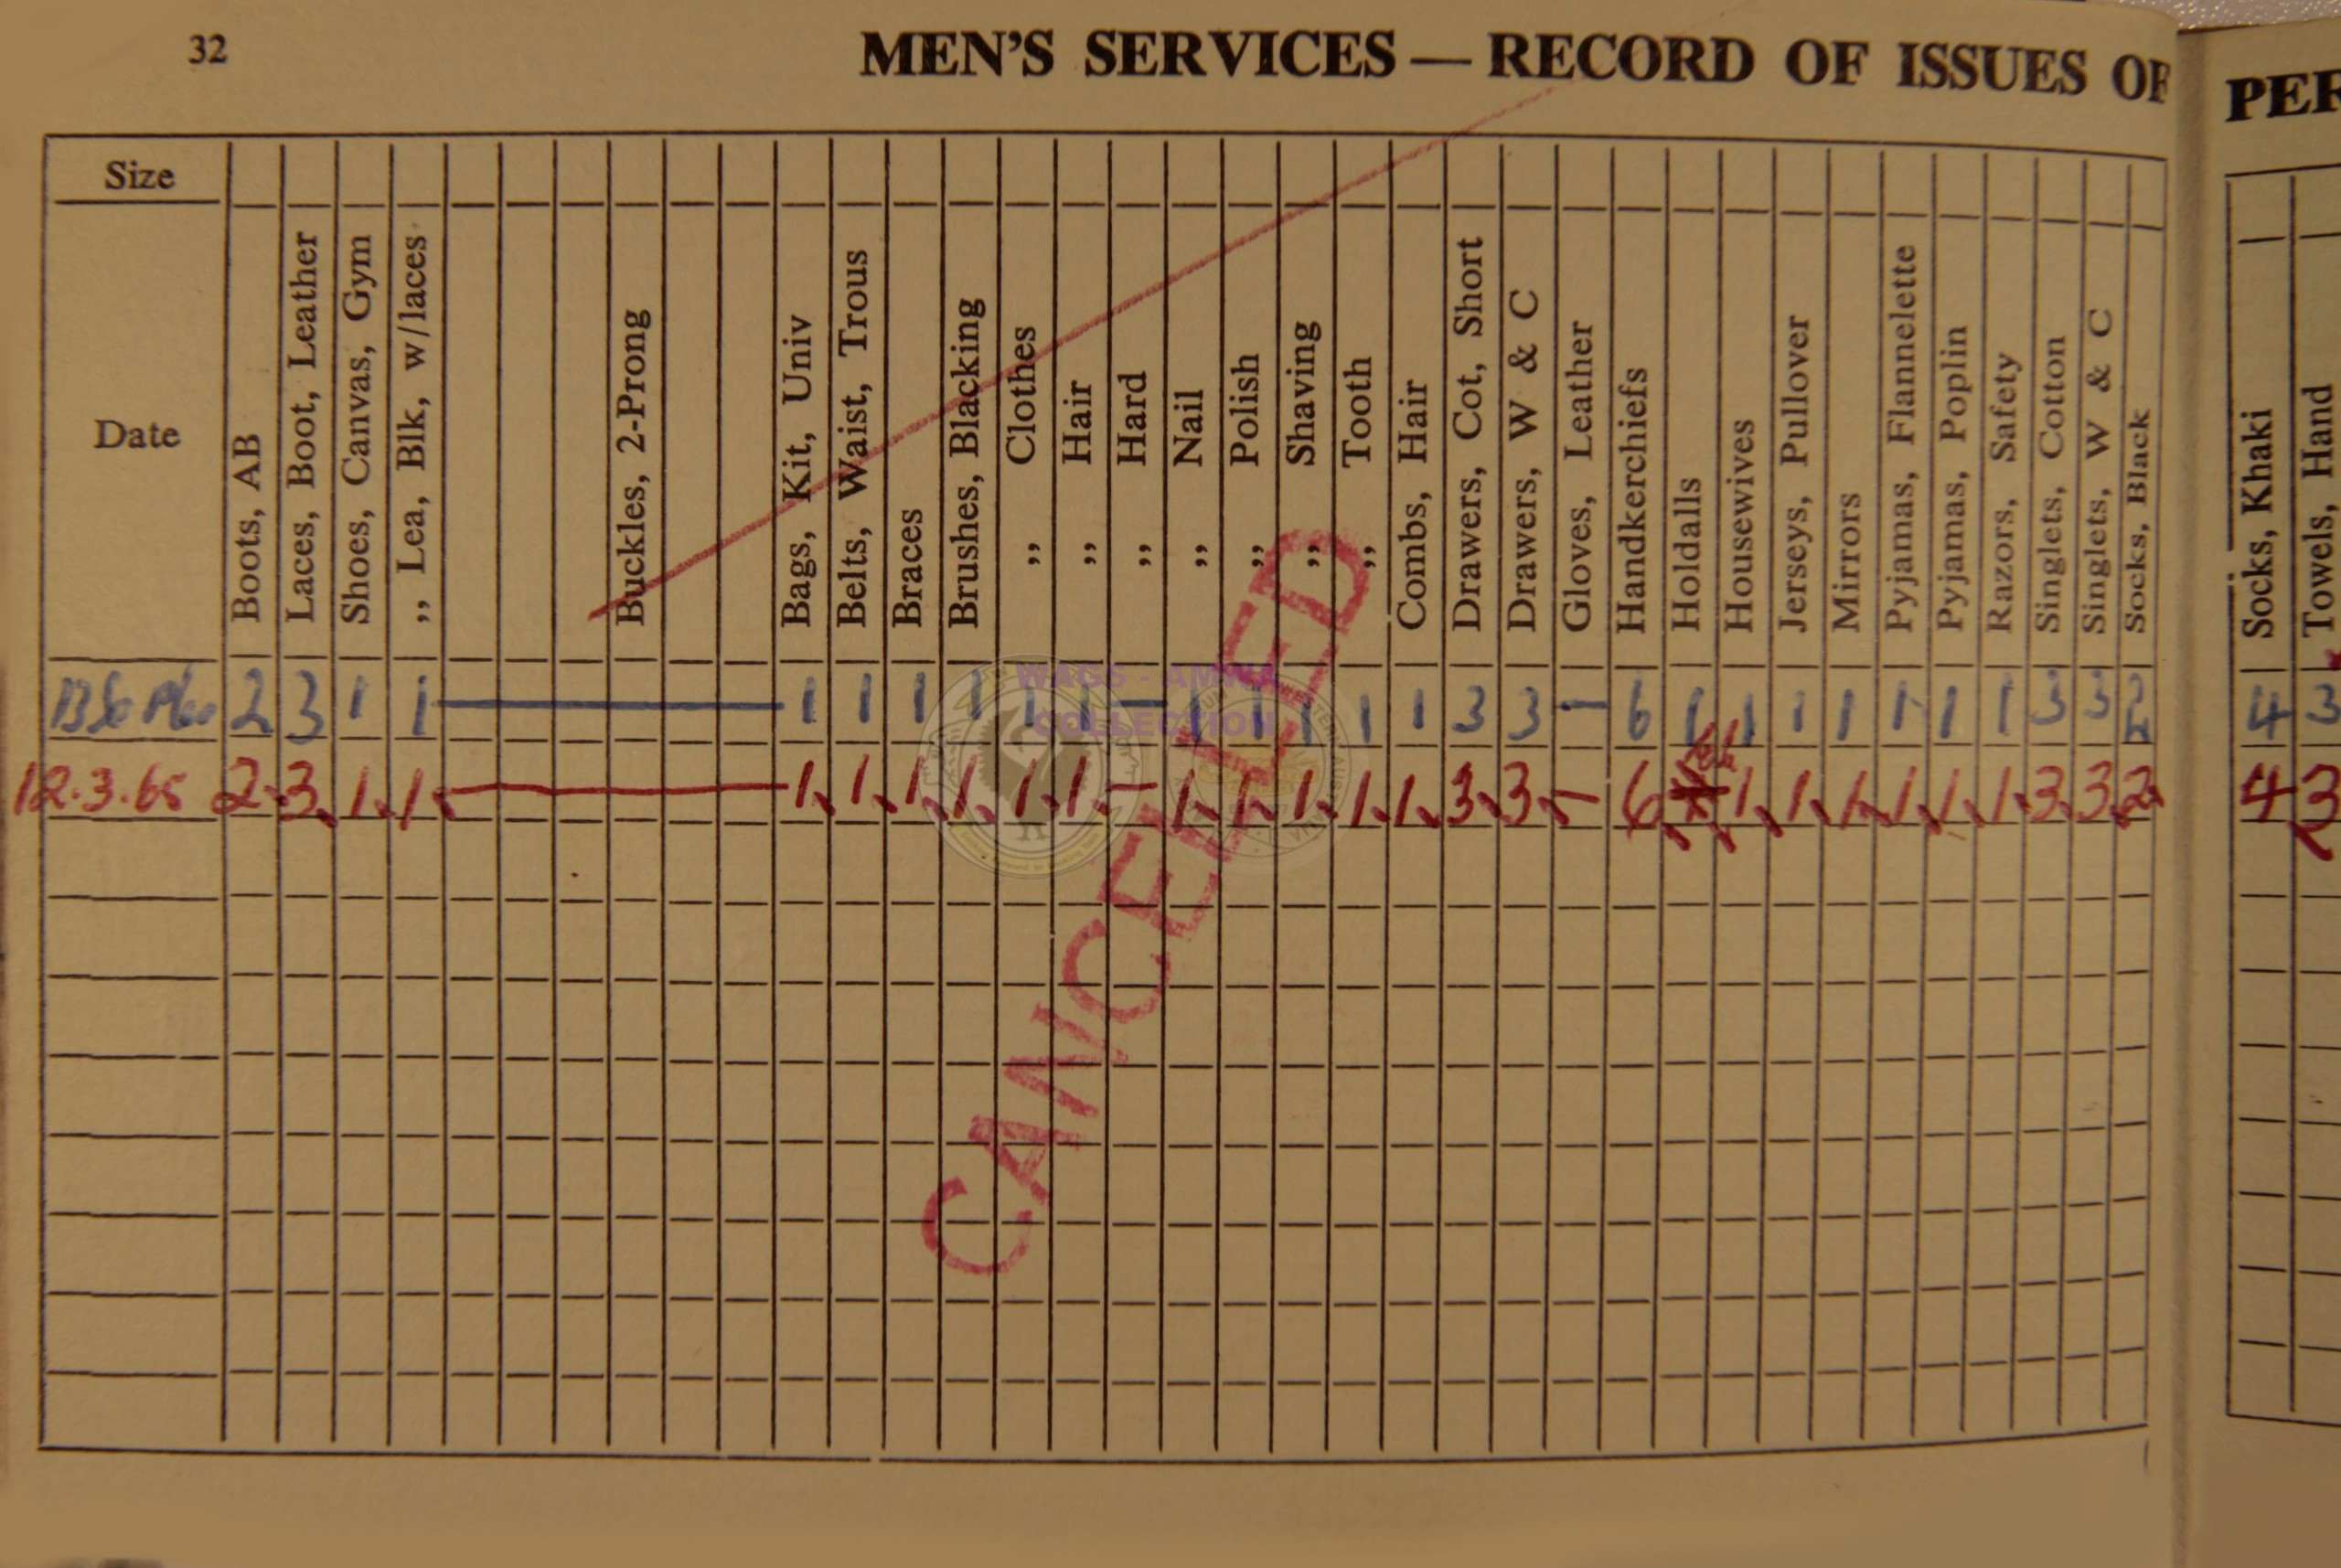 32
MEN'S SERVICES — RECORD OF ISSUES OF
PER
Size
Date
Boots, AB
Laces, Boot, Leather
Shoes, Canvas, Gym
,, Lea, Blk, w/laces
Buckles, 2-Prong
Bags, Kit, Univ
Belts, Waist, Trous
Braces
Brushes, Blacking
,, Clothes
,, Hair
,, Hard
,, Nail
,, Polish
,, Shaving
,, Tooth
Combs, Hair
Drawers, Cot, Short
Drawers, W & C
Gloves, Leather
Handkerchiefs
Holdalls
Housewives
Jerseys, Pullover
Mirrors
Pyjamas, Flannelette
Pyjamas, Poplin
Razors, Safety
Singlets, Cotton
Singlets, W & C
Socks, Black
Socks, Khaki
Towels, Hand
2 3 1 1 — 1 1 1 1 1 1 — 1 1 1 1 1 3 3 — 6 1 1 1 1 1 1 1 3 3 2 4 3
12.3.65 2 3 1 1 — 1 1 1 1 1 1 — 1 1 1 1 1 3 3 — 6 1 1 1 1 1 1 3 3 2 4 3
CANCELLED
WAGS - AMWA
COLLECTION